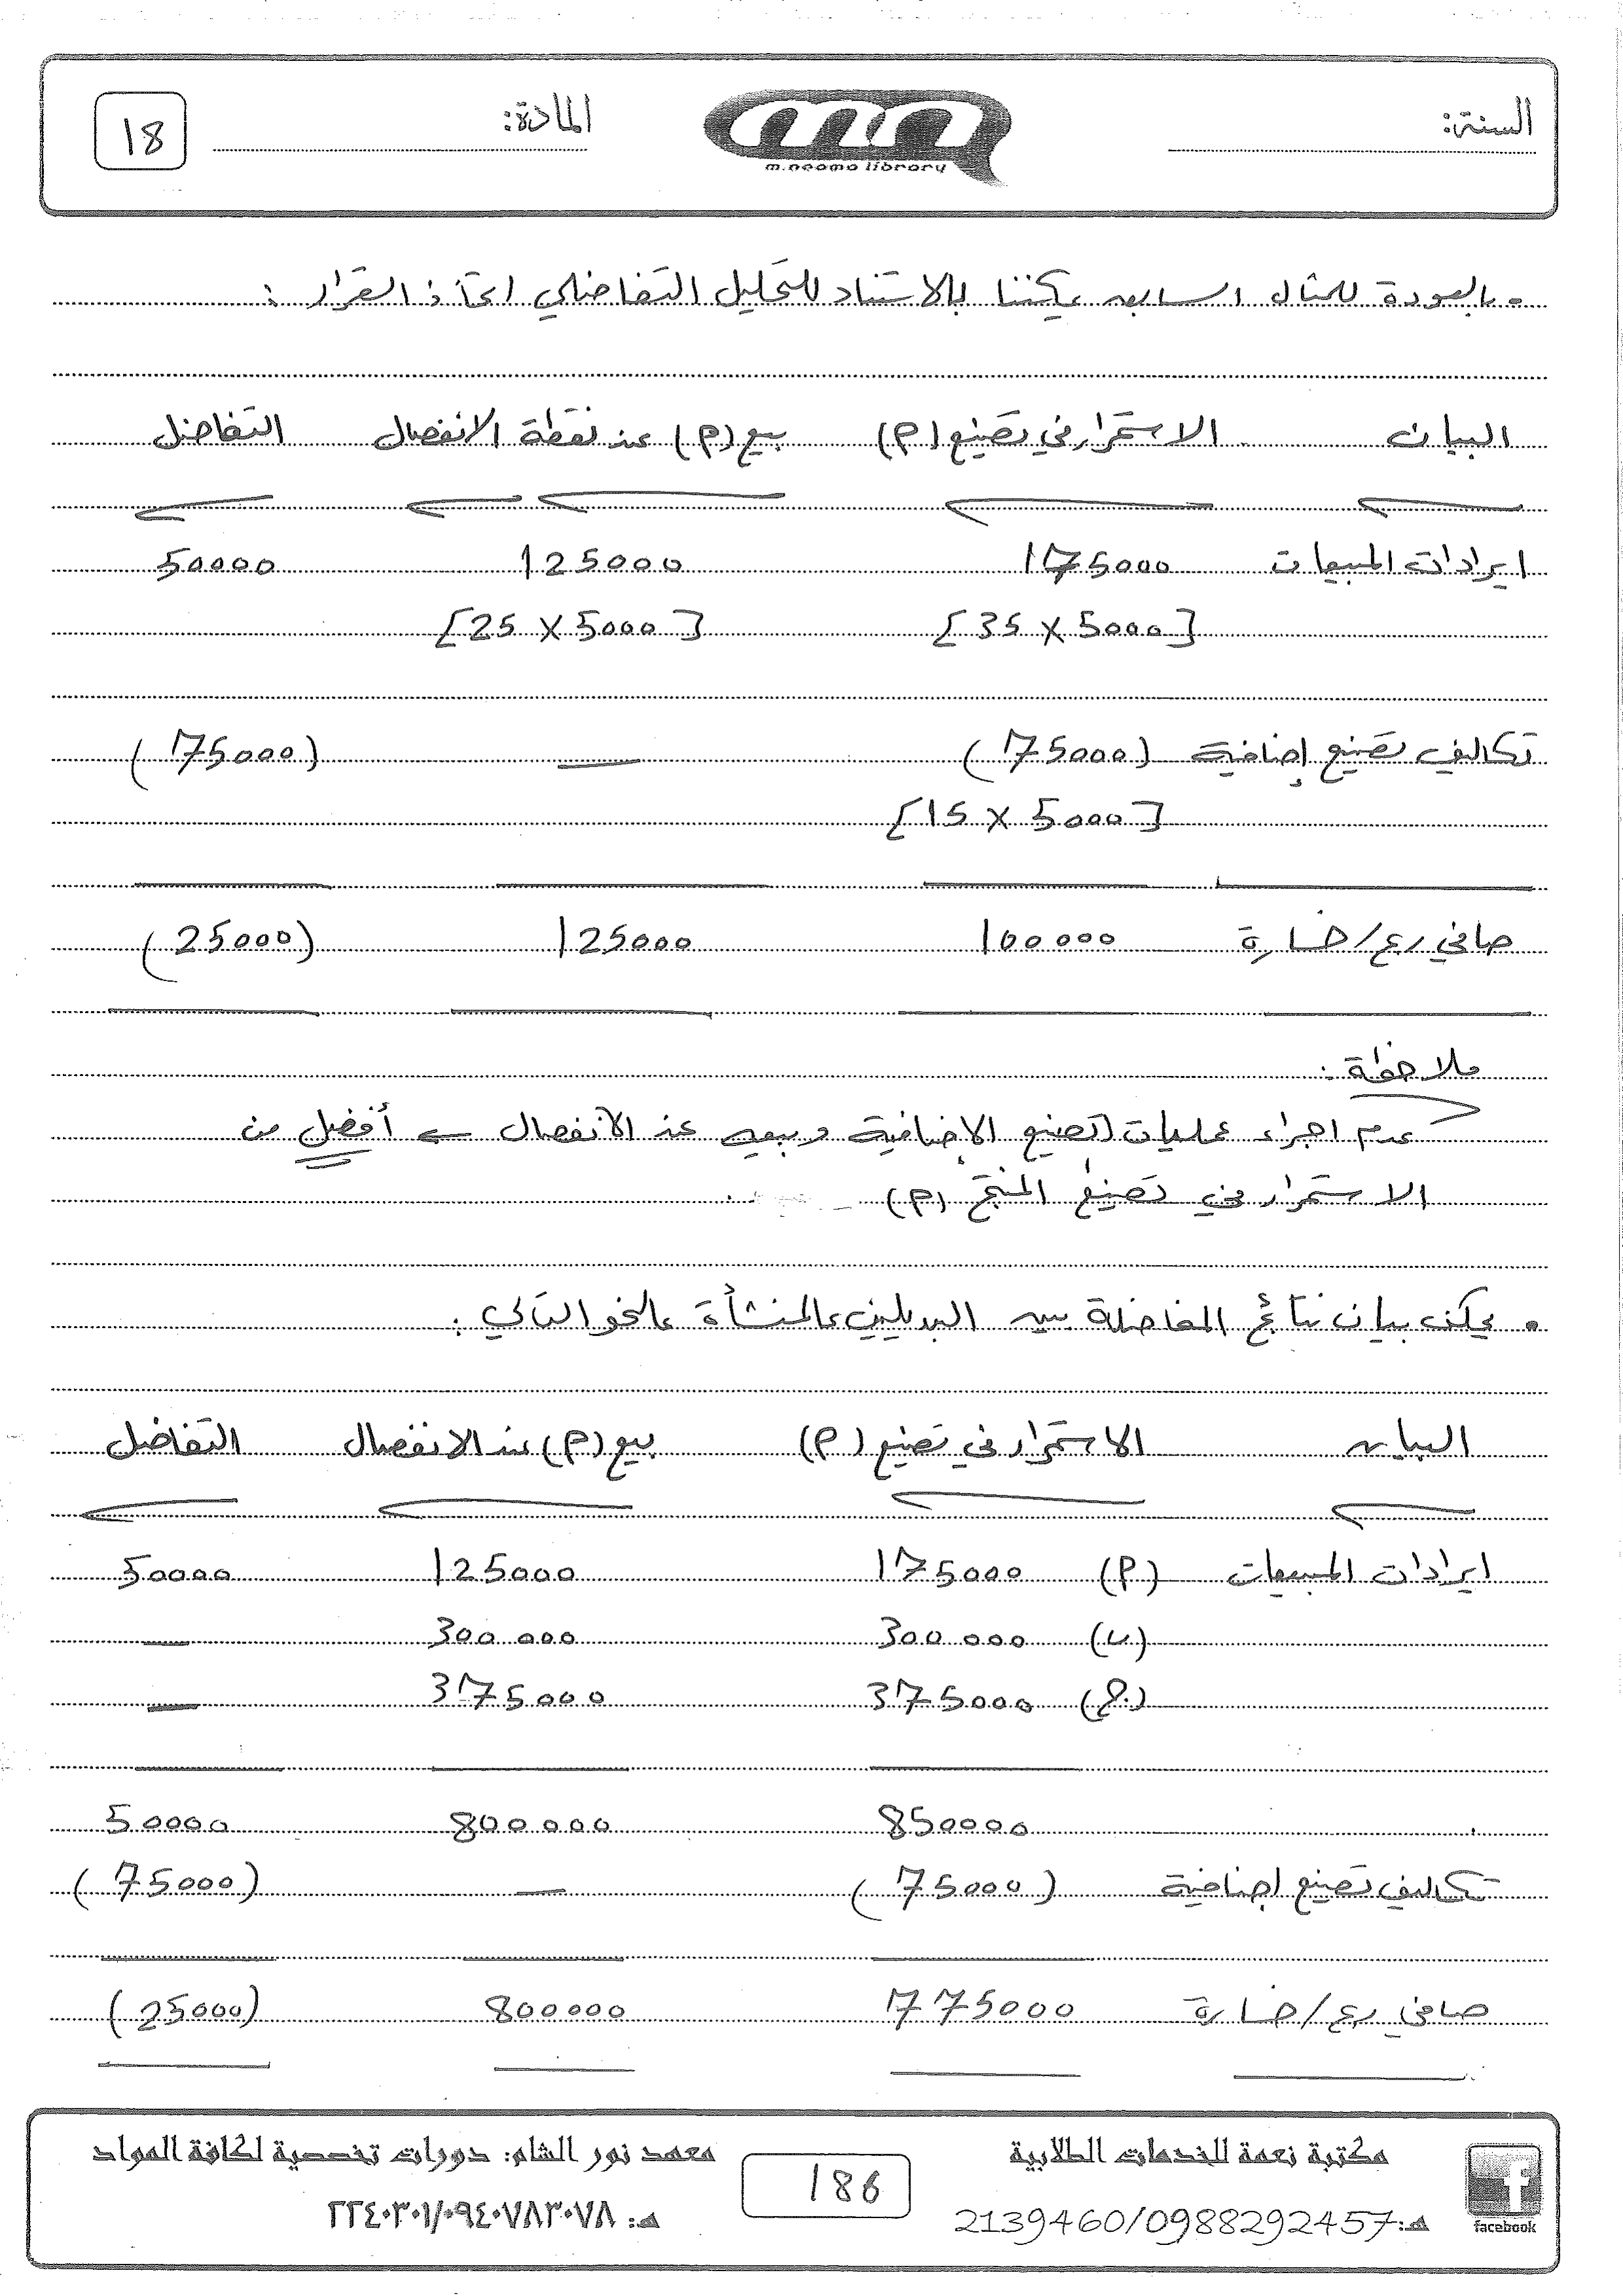 السنة:
m.neoma library
المادة:
18
• بالعودة للمثال السابق يمكننا بالاستناد للتحليل التفاضلي اتخاذ القرار :
البيان الاستمرار في تصنيع (م) بيع (م) عند نقطة الانفصال التفاضل
ايرادات المبيعات 175000 125000 50000
[35 X 5000] [25 X 5000]
تكاليف تصنيع إضافية (175000) — (175000)
[15 X 5000]
صافي ربح/خسارة 100000 125000 (25000)
ملاحظة :
عدم اجراء عمليات التصنيع الإضافية وبيعه عند الانفصال ← أفضل من
الاستمرار في تصنيع المنتج (م)
• يمكن بيان نتائج المفاضلة بين البديلين عالمنشأة عالنحو التالي :
البيان الاستمرار في تصنيع (م) بيع (م) عند الانفصال التفاضل
ايرادات المبيعات (م) 175000 125000 50000
(ب) 300 000 300 000 —
(ج) 375000 375000 —
850000 800 000 50000
تكاليف تصنيع اضافية (75000) — (75000)
صافي ربح/خسارة 775000 800000 (25000)
facebook
مكتبة نعمة للخدمات الطلابية
هـ: 2139460/0988292457
186
معهد نور الشام: دورات تخصصية لكافة المواد
هـ: ٢٢٤٠٣٠١/٠٩٤٠٧٨٣٠٧٨